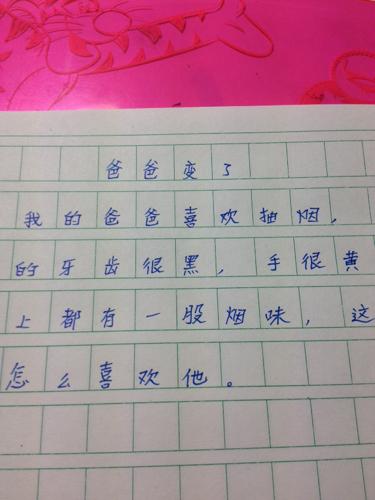 爸爸变了
我的爸爸喜欢抽烟，
的牙齿很黑，手很黄
上都有一股烟味，这
怎么喜欢他。